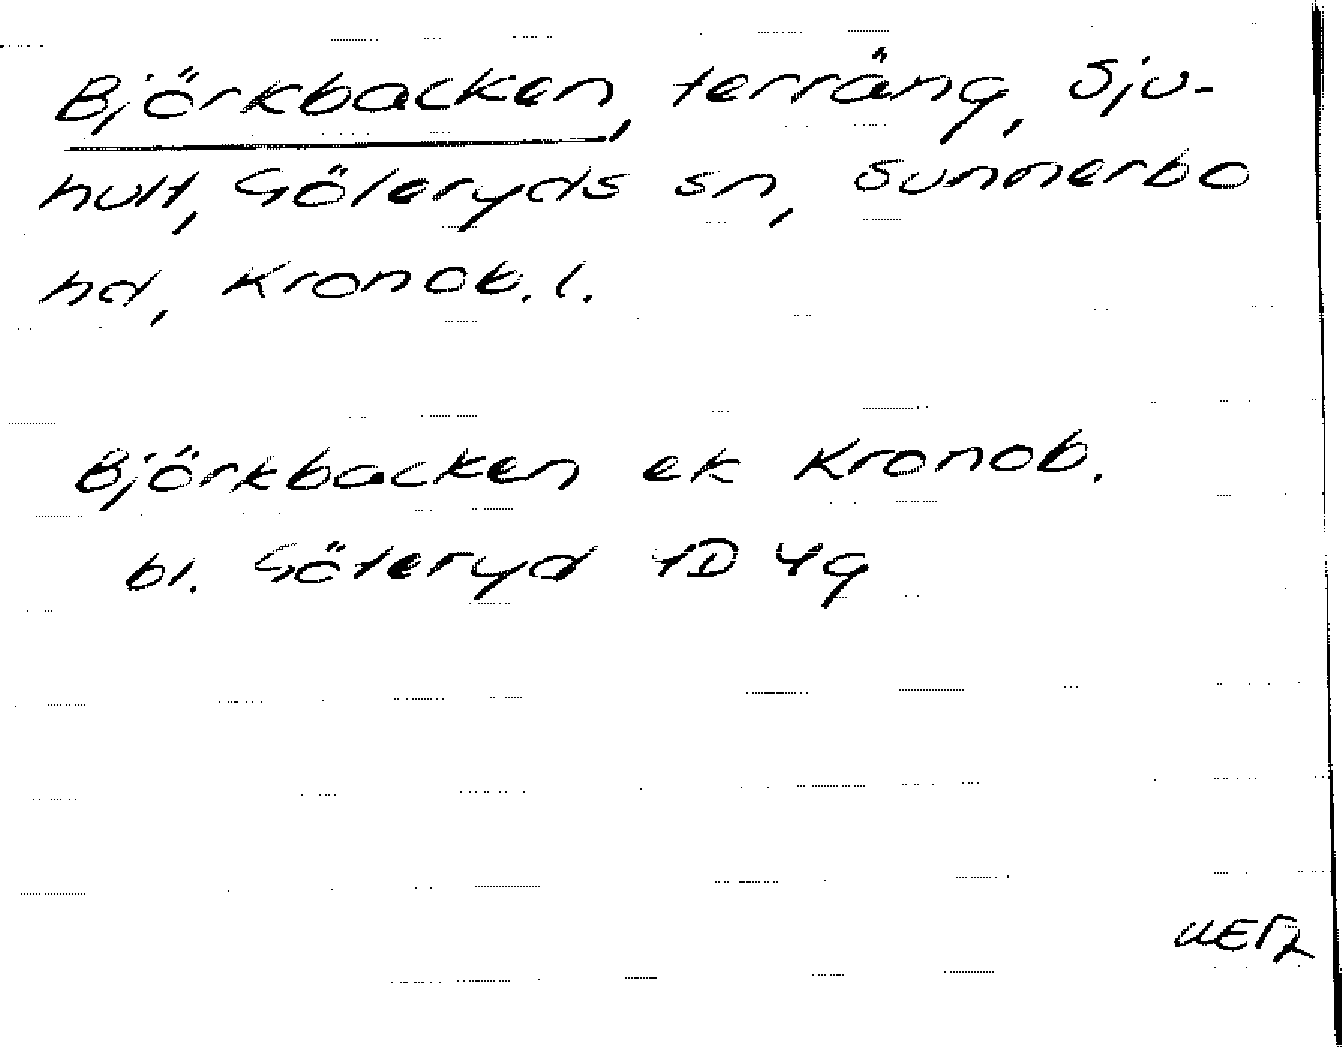 Björkbacken, terräng, Sju-
hult, Göteryds sn, Sunnerbo
hd, Kronob. l.
Björkbacken ek Kronob.
bl. Göteryd 4D 4g